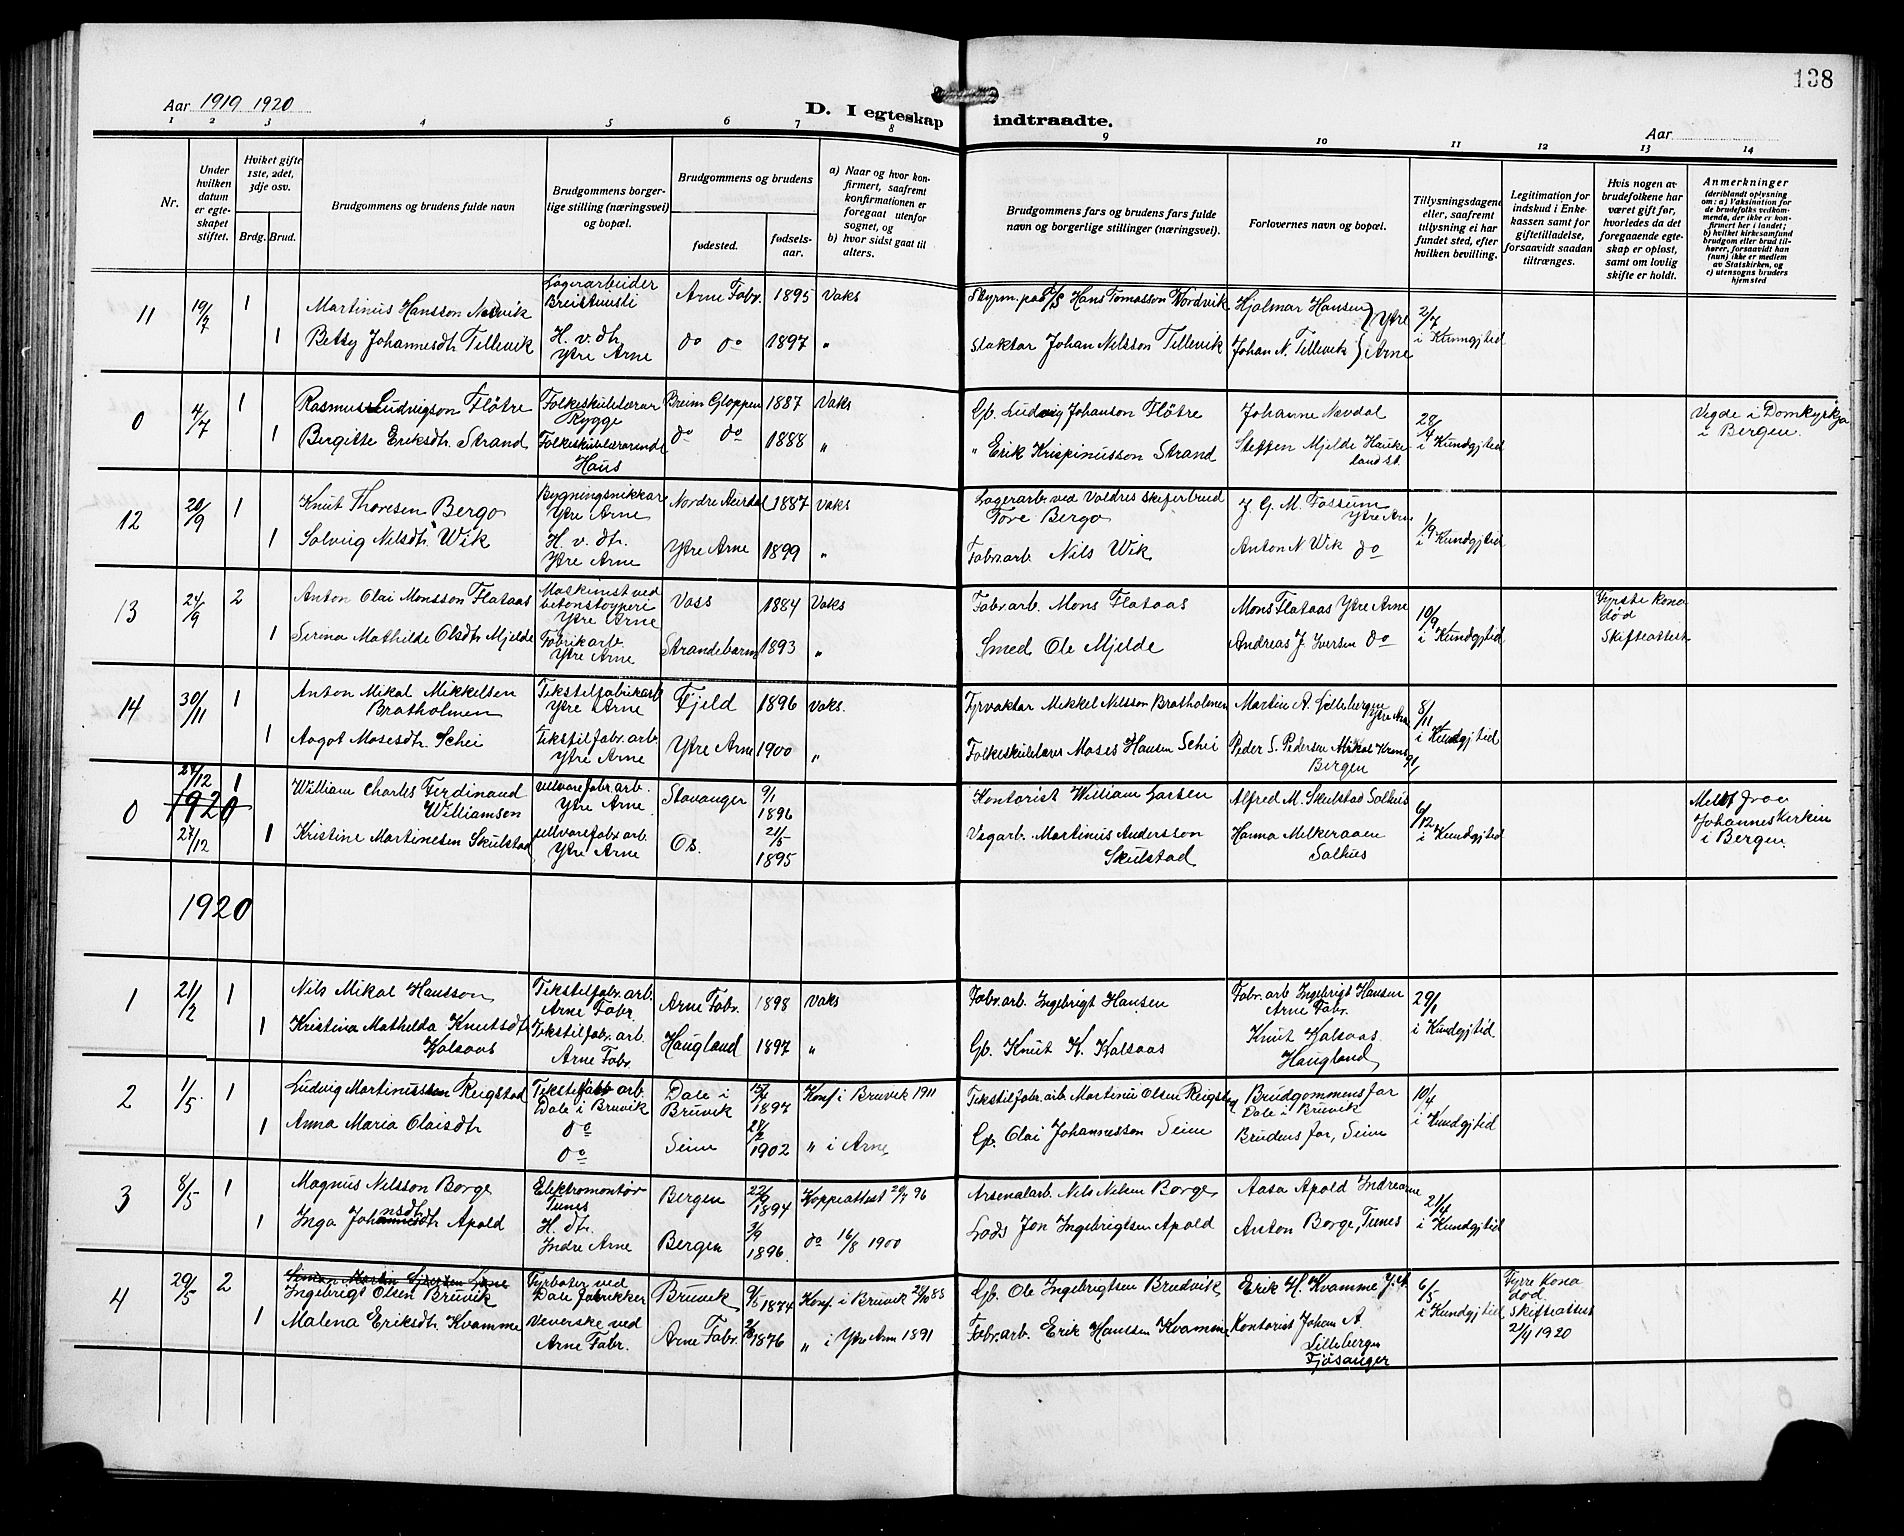 138
Aar 1919 1920
D. I egteskap indtraadte.
Aar
1 2 3 4 5 6 7 8 9 10 11 12 13 14
Nr.
Under hvilken datum er egteskapet stiftet.
Hviket gifte 1ste, 2det, 3dje osv.
Brdg. Brud.
Brudgommens og brudens fulde navn
Brudgommens borgerlige stilling (næringsvei) og bopæl.
Brudgommens og brudens
fødested.
fødselsaar.
a) Naar og hvor konfirmert, saafremt konfirmationen er foregaat utenfor sognet, og
b) hvor sidst gaat til alters.
Brudgommens fars og brudens fars fulde navn og borgerlige stillinger (næringsvei).
Forlovernes navn og bopæl.
Tillysningsdagene eller, saafremt tillysning ei har fundet sted, efter hvilken bevilling.
Legitimation for indskud i Enkekassen samt for giftetilladelse, forsaavidt saadan tiltrænges.
Hvis nogen av brudefolkene har været gift før, hvorledes da det foregaaende egteskap er opløst, samt om lovlig skifte er holdt.
Anmerkninger (deriblandt oplysning om: a) Vaksination for de brudefolks vedkommende, der ikke er konfirmert her i landet; b) hvilket kirkesamfund brudgom eller brud tilhører, forsaavidt han (hun) ikke er medlem av Statskirken, og c) utensogns bruders hjemsted
11 19/7 1 Martinus Hansson Lagerarbeider Breistensli Arne Fabr. 1895 Vaks Hans Tomasson Nordvik Hjalmar Hansen } Ytre 2/7
1 Betsy Johannesdtr Tellevik H. v. dtr. Ytre Arne do do 1897 " Slaktar Johan Nilsson Tellevik Johan N. Tellevik } Arne i Kunngjtid
0 4/7 1 Rasmus Ludvigson Fløtre Folkeskulelærar Rygge Breim Gloppen 1887 Vaks Gb. Ludvig Johanson Fløtre Johanne Nevdal 28/4 Vigde i Domkyrkja
1 Bergitte Eriksdtr. Strand Folkeskulelærarinde Haus do do 1888 " " Erik Krispinusson Strand Steffen Mjelde Haukeland st. i Kundgjtid i Bergen.
12 20/9 1 Knut Thoresen Bergo Bygningsnikkar Ytre Arne Nordre Aurdal 1887 Vaks Lagerarb. ved Valdres skiferbrud Tore Bergo J. G. M. Fossum Ytre Arne 1/9
1 Solvig Nilsdtr. Wik H. v. dtr. Ytre Arne Ytre Arne 1899 " Fabr.arb. Nils Wik Anton N Wik do i Kundgjtid
13 24/9 2 Anton Olai Monsson Flataas Maskinist ved betonstøyperi Ytre Arne Voss 1884 Vaks Fabr.arb. Mons Flataas Mons Flataas Ytre Arne 10/9 Fyrste kona død
1 Serina Mathilde Olsdtr Mjelde Fabrikarb. Ytre Arne Strandebarm 1893 " Smed Ole Mjelde Andreas J. Iversen do i Kundgjtid Skifteattest
14 30/11 1 Anton Mikal Mikkelsen Bratholmen Tekstilfabrikarb. Ytre Arne Fjeld 1896 Vaks. Fyrvaktar Mikkel Nilsson Bratholmen Martin A. Lillebergen Ytre Arne 8/11
1 Aagot Mosesdtr. Schei Tekstilfabr.arb. Ytre Arne Ytre Arne 1900 " Folkeskulelærar Moses Hansen Schei Peder S. Pedersen Bergen i Kundgjtid
0 27/12 1 William Charles Ferdinand Williamson Ytre Arne Stavanger 9/1 1896 Kontorist William Larsen Alfred M. Skulstad Salhus 6/12
1920
27/12 1 Kristine Martinesen Skulstad Ytre Arne Os. 21/5 1895 Vegarb. Martinus Andersson Skulstad Hanna Melkeraaen Salhus i Kundgjtid Johanneskirken i Bergen
1920
1 21/2 1 Nils Mikal Hansson Tekstilfabr.arb. Arne Fabr. Arne Fabr. 1898 Vaks Fabr.arb. Ingebrigt Hansen Fabr.arb Ingebrigt Hansen Arne Fabr. 29/1
1 Kristina Mathilda Knutsdtr Kalsaas Tekstilfabr.arb. Arne Fabr. Haugland 1897 " Gb. Knut K. Kalsaas Knut Kalsaas Haugland i Kundgjtid
2 1/5 1 Ludvig Martinussen Reigstad Tekstilfabr arb. Dale i Bruvik Dale i Bruvik 1897 Konf. i Bruvik 1911 Tekstilfabr.arb. Martinus Olsen Reigstad Brudgommens far Dale i Bruvik 10/4
1 Anna Maria Olaisdtr do do Seim 1902 " i Arne Gb. Olai Johannesson Seim Brudens far, Seim i Kundgjtid
3 8/5 1 Magnus Nilsson Borge Elektromontør Tunes Bergen 22/9 1894 Koppeattest 96 Arsenalarb. Nils Nilsen Borge Aasa Apold Indre Arne 21/4
1 Inga Johannesdtr Apold H. dtr. Indre Arne Bergen 3/9 1896. do 16/8 1900 Lods Jon Ingebrigtsen Apold Anton Borge, Tunes i Kundgjtid
4 29/5 2 Ingebrigt Olsen Bruvik Fyrbøter ved Dale fabrikker Bruvik 9/5 1874 Konf. i Bruvik Gb. Ole Ingebrigtsen Brudvik Erik H. Kvamme Y.A. 6/5 Fyrre kona død
1 Malena Eriksdtr Kvamme Veverske ved Arne Fabr. Arne Fabr. 1876 " i Ytre Arne 1891 Fabr.arb. Erik Hanssen Kvamme Kontorist Johan A. Lillebergen Fjøsanger i Kundgjtid skifteattest 21/1 1920